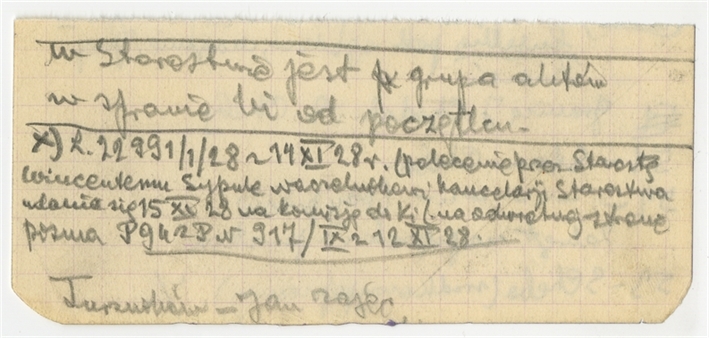 w Starostwie jest grupa aktów
w sprawie Ki od początku.
x) L. 22991/1/28 z 14 XI 28 r. (polecenie przez Starostę
Wincentemu Sypule naczelnikowi kancelarji Starostwa
udania się 15 XI 28 na komisję do Ki) na odwrotnej stronie
pisma P 942 P W 917/IX z 12 XI 28.
Jan Zając